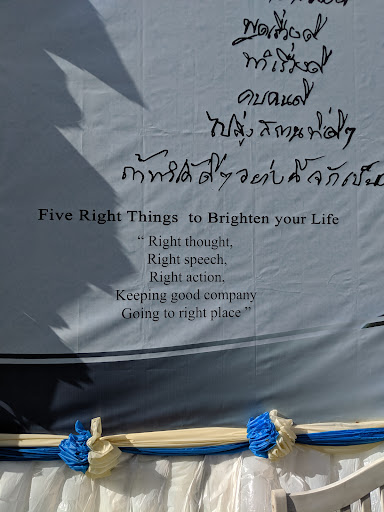 พูดเรื่องดี
ทำเรื่องดี
คบคนดี
ไปสู่สถานที่ดีๆ
ถ้าทำได้ดีๆอย่างนี้จักเป็น
Five Right Things to Brighten your Life
“ Right thought,
Right speech,
Right action,
Keeping good company
Going to right place ”